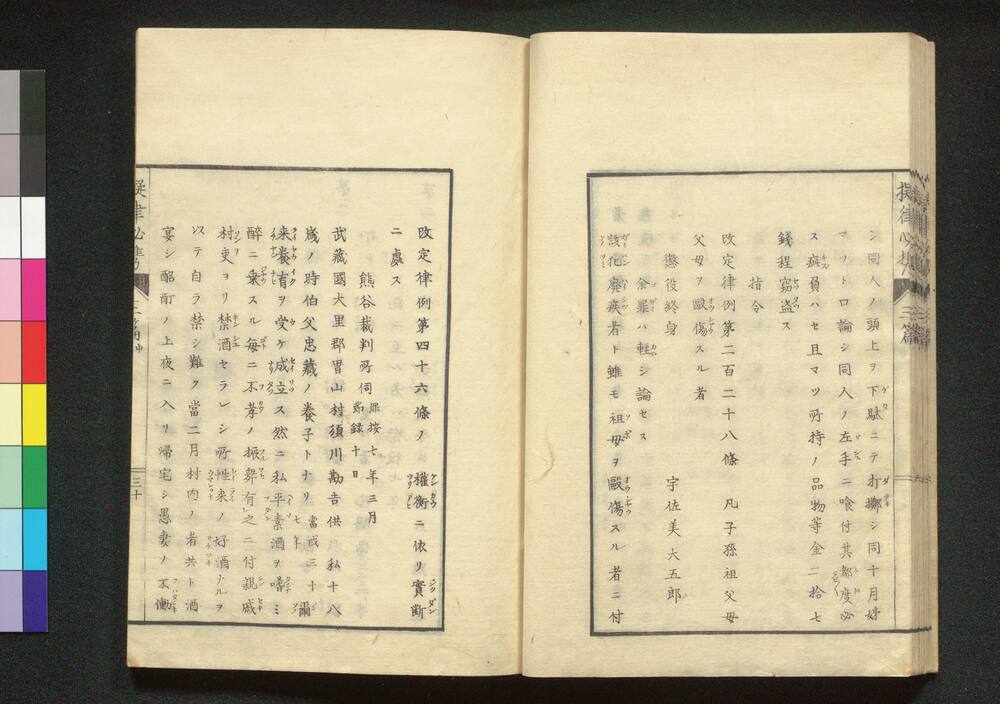 シ同人ノ頭上ヲ下駄ニテ打擲シ同十月姉
マツト口論シ同人ノ左手ニ喰付其都度必
ス疵負ハセ且マツ所持ノ品物等金二拾七
錢程窃盗ス
指令
改定律例第二百二十八條 凡子孫祖父母
父母ヲ毆傷スル者
懲役終身 宇佐美大五郎
余罪ハ軽シ論セス
該犯廢疾者ト雖モ祖母ヲ毆傷スル者ニ付
改定律例第四十六條ノ權衡ニ依リ實断
ニ處ス
熊谷裁判所伺 罪按七年三月
節録十日
武藏國大里郡冑山村須川勘吉供 私十八
歳ノ時伯父忠藏ノ養子トナリ 當戌三十
七年 爾
来養育ヲ受ケ成立ス然ニ私平素酒ヲ嗜ミ
醉ニ乗スル毎ニ不孝ノ振舞有之ニ付親戚
村吏ヨリ禁酒セラレシ所性来ノ好酒ナルヲ
以テ自ラ禁シ難ク當二月村内ノ者共ト酒
宴シ酩酊ノ上夜ニ入リ帰宅シ愚妻ノ不働
擬律必携
三十